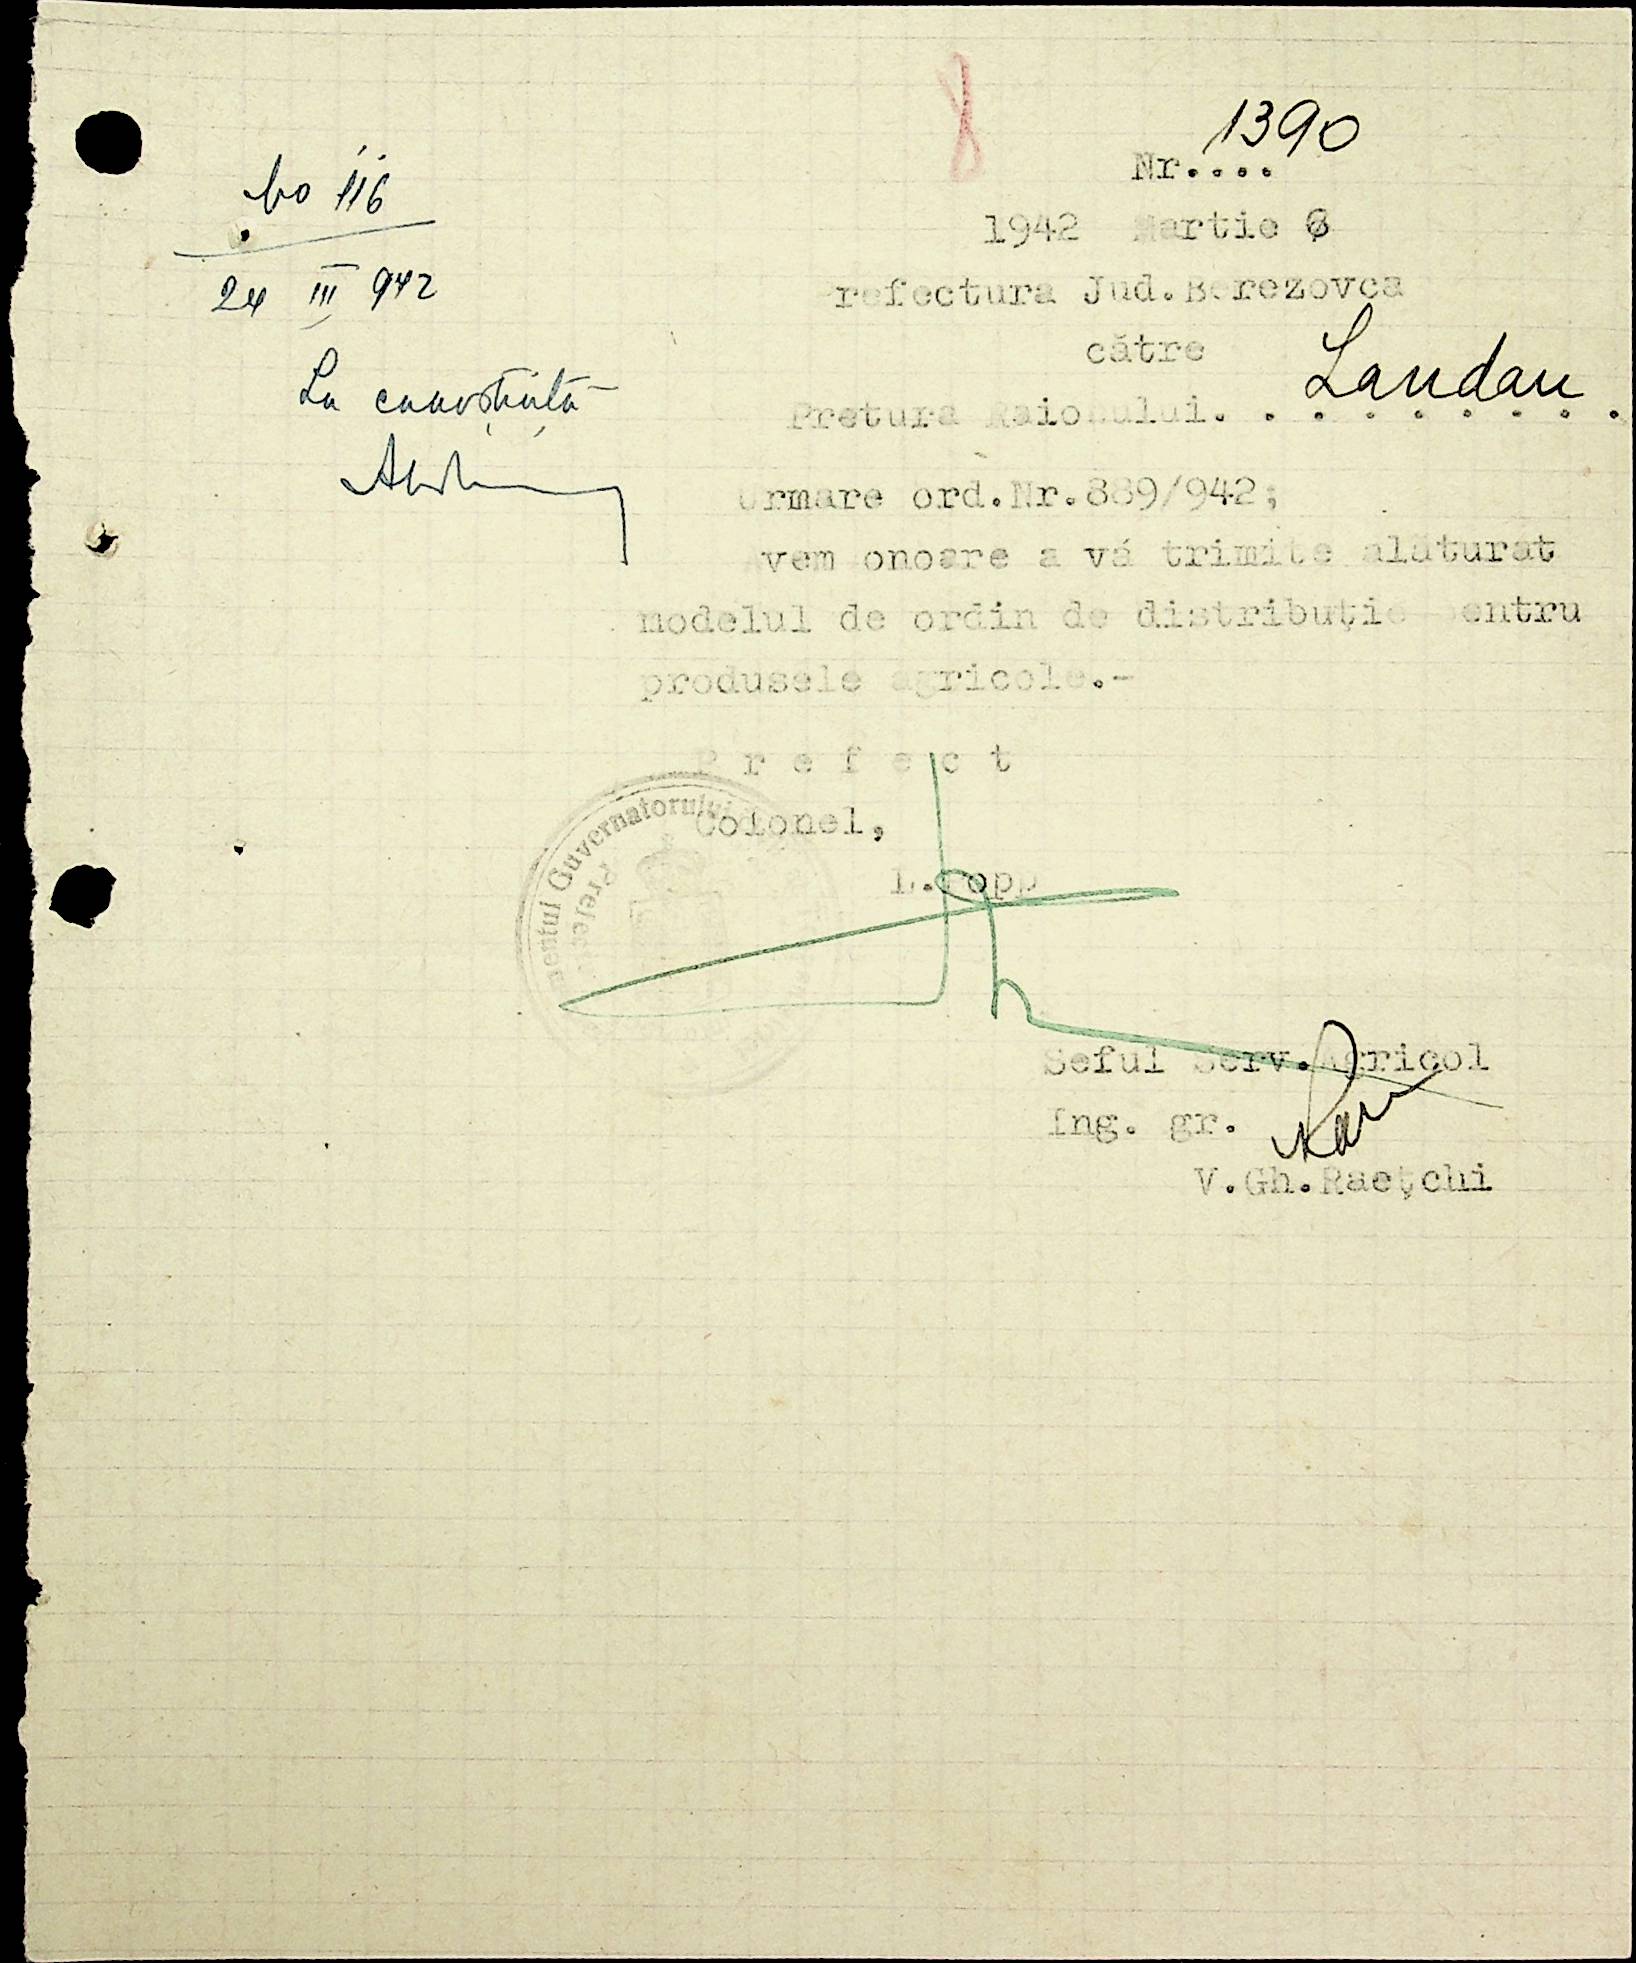 8
1390
Nr....
No 116
24 III 942
La cunoștință
1942 Martie 8
Prefectura Jud.Berezovca
către
Pretura Raionului. . . . . . . . .
Landau
Urmare ord.Nr.889/942;
Avem onoare a vá trimite alăturat
modelul de ordin de distribuţie pentru
produsele agricole.-
P r e f e c t
Colonel,
L.Popp
Guvernatorului
Prefec
Seful Serv.Agricol
Ing. gr.
V.Gh.Raeţchi